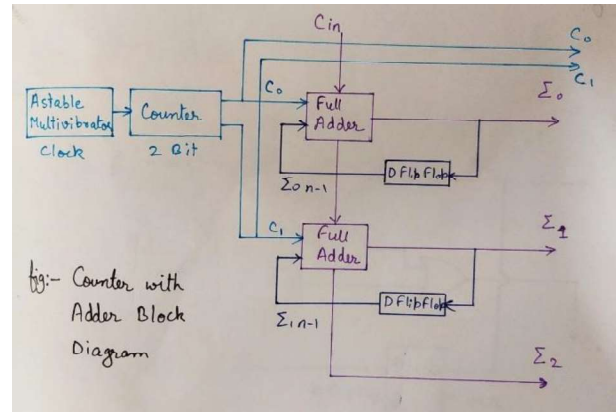 Cin
C0
C1
Σ0
Astable
Multivibrator
Clock
Counter
2 Bit
C0
Full
Adder
D FlipFlop
Σ0 n-1
C1
Full
Adder
Σ1
D FlipFlop
Σ1 n-1
fig:- Counter with
Adder Block
Diagram
Σ2